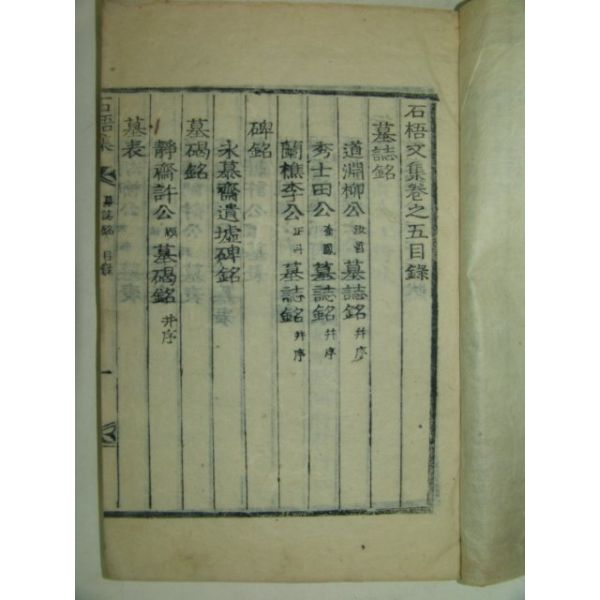 石梧文集卷之五目錄
墓誌銘
道淵柳公墓誌銘 幷序
秀士田公墓誌銘 幷序
蘭樵李公墓誌銘 幷序
碑銘
永慕齋遺墟碑銘
墓碣銘
靜齋許公墓碣銘 幷序
墓表
石梧集
墓誌銘 目錄
一